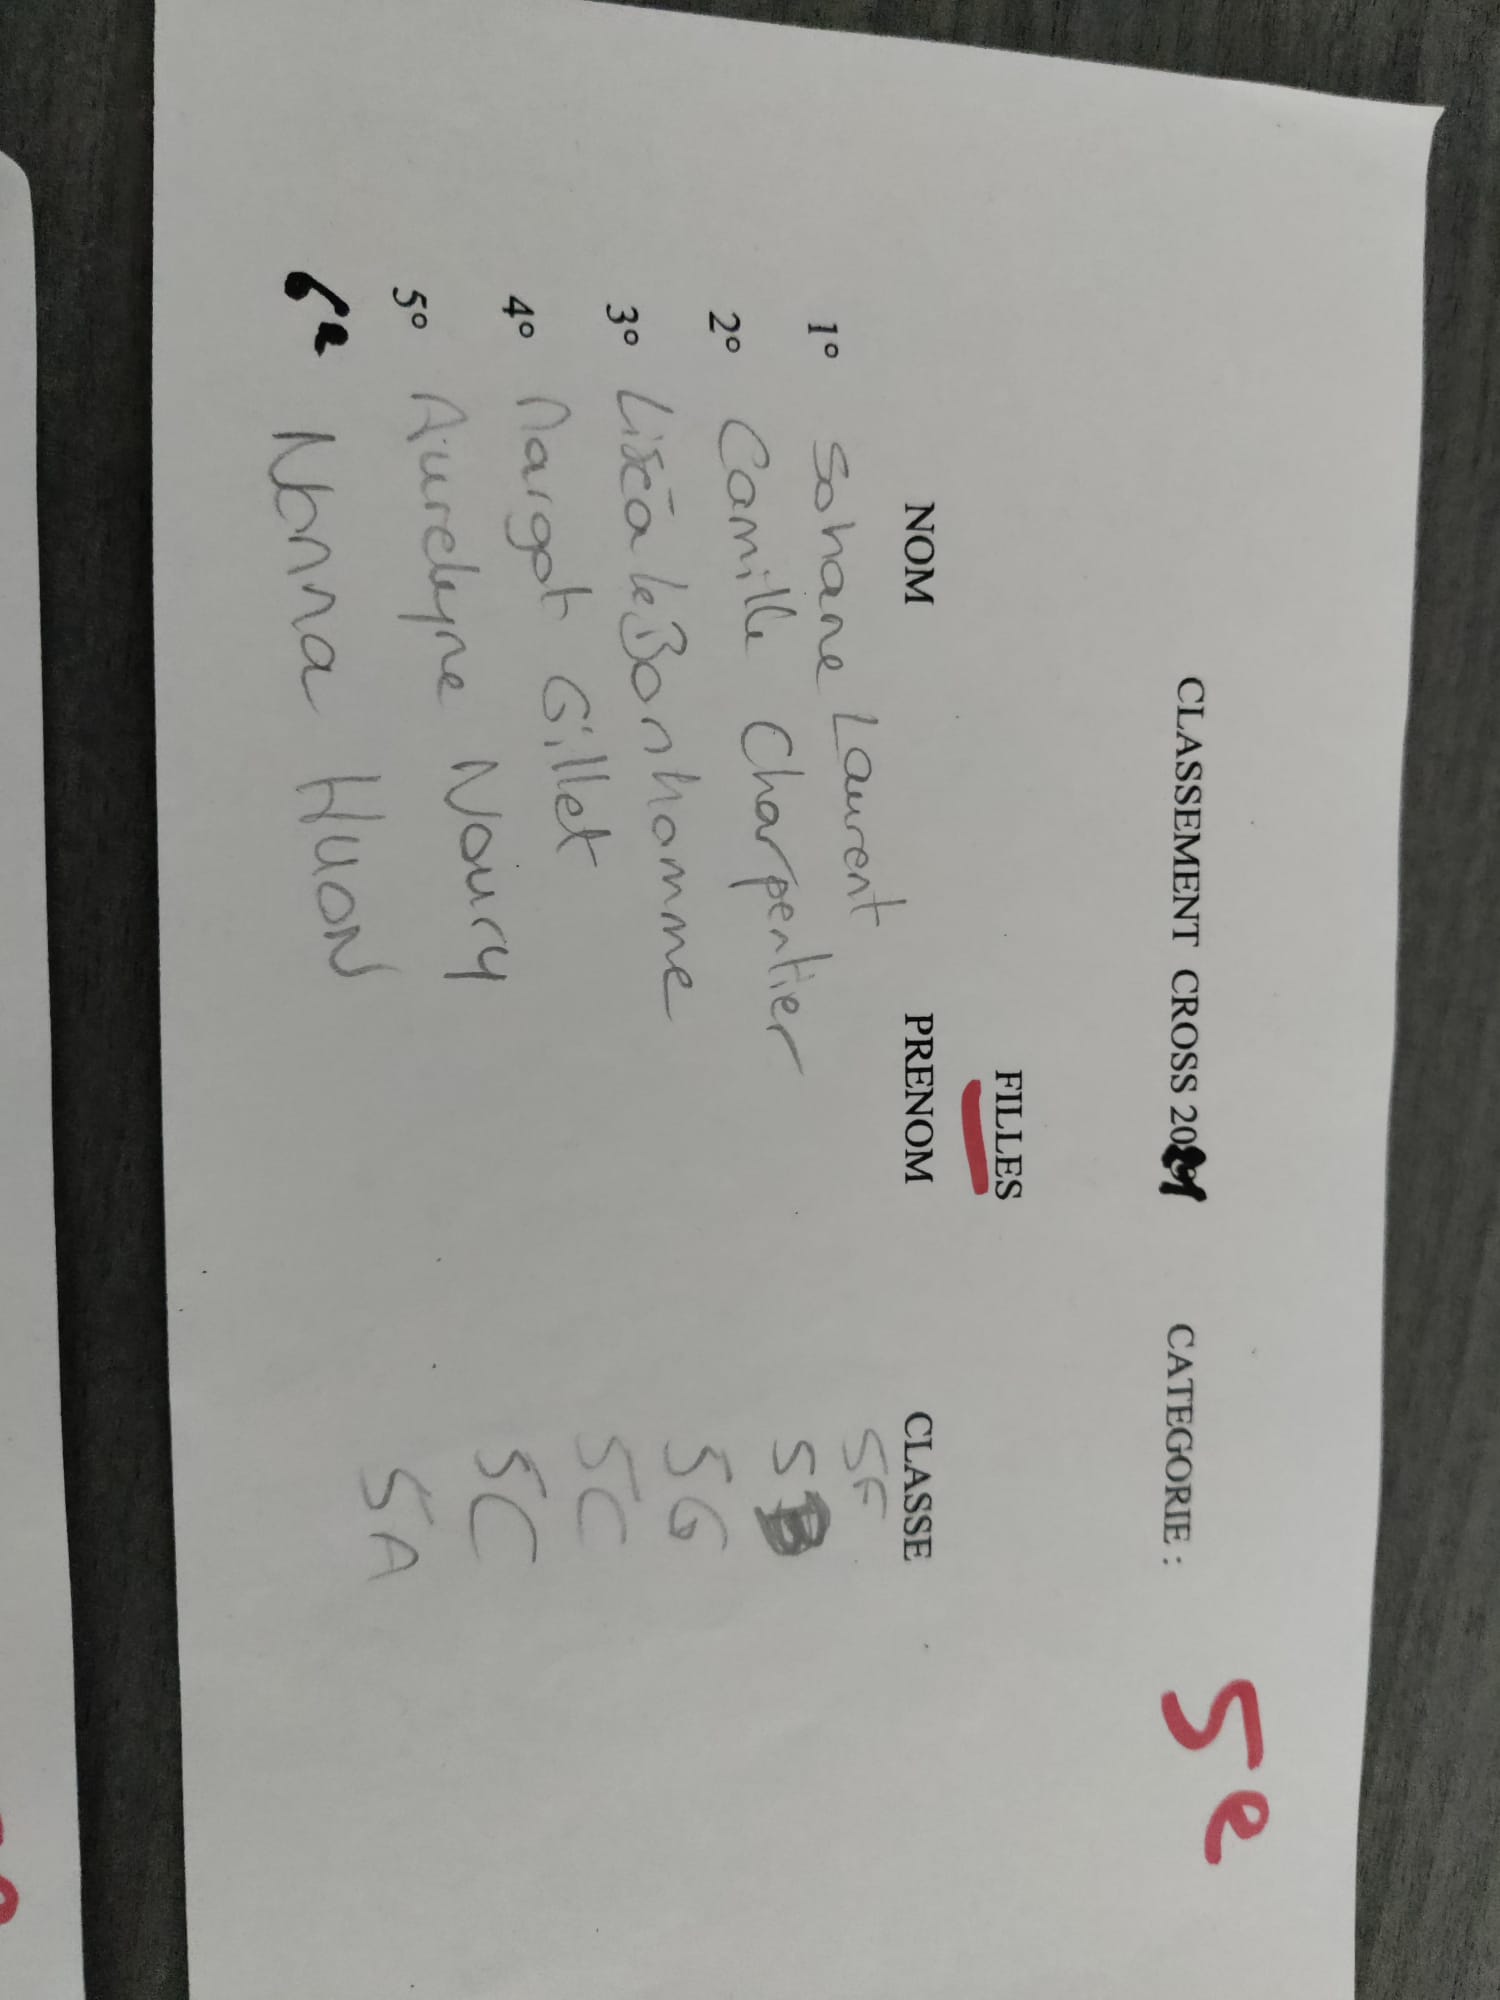 CLASSEMENT CROSS 2024 CATEGORIE : 5e
FILLES
NOM PRENOM CLASSE
1° Sohane Laurent 5F
2° Camille Charpentier 5B
3° le Bonhomme 5G
4° Margot Gillet 5C
5° Noury 5C
6e Nonna HUON 5A